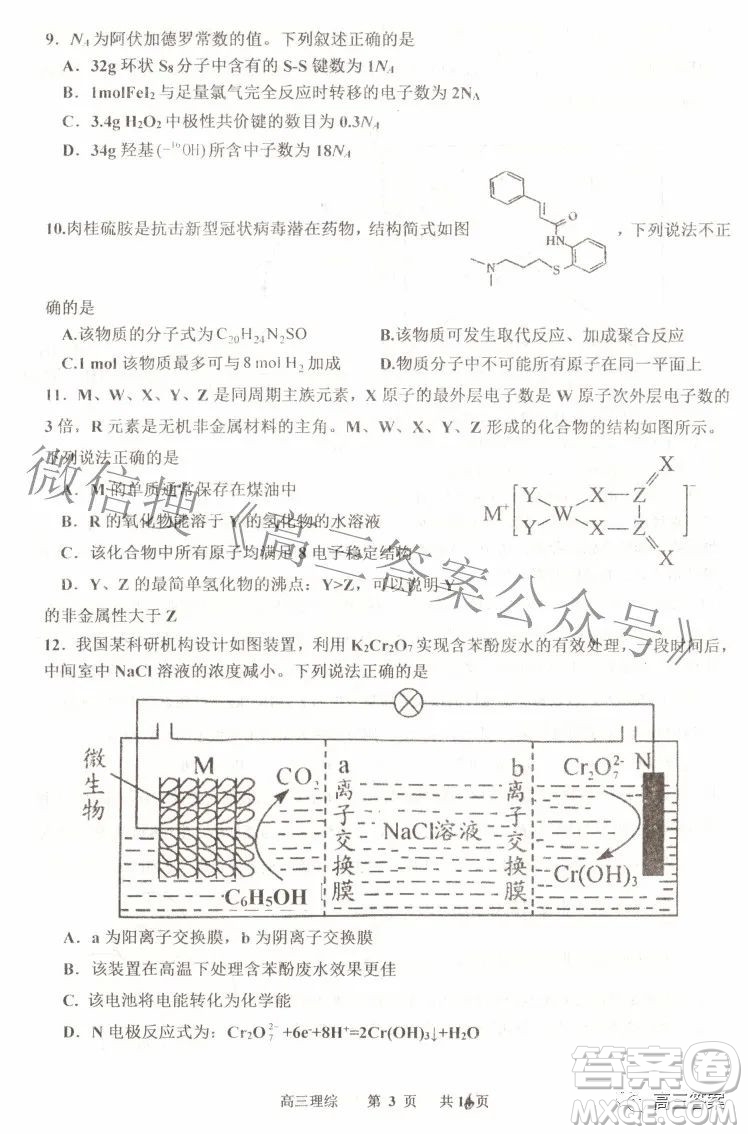 9．N_A为阿伏加德罗常数的值。下列叙述正确的是
A．32g 环状 S₈分子中含有的 S-S 键数为 1N_A
B．1molFeI₂与足量氯气完全反应时转移的电子数为 2N_A
C．3.4g H₂O₂中极性共价键的数目为 0.3N_A
D．34g 羟基(—¹⁶OH)所含中子数为 18N_A
10.肉桂硫胺是抗击新型冠状病毒潜在药物，结构简式如图
，下列说法不正
O
HN
N
S
确的是
A.该物质的分子式为C₂₀H₂₄N₂SO B.该物质可发生取代反应、加成聚合反应
C.1 mol 该物质最多可与 8 mol H₂ 加成 D.物质分子中不可能所有原子在同一平面上
11．M、W、X、Y、Z 是同周期主族元素，X 原子的最外层电子数是 W 原子次外层电子数的
3 倍，R 元素是无机非金属材料的主角。M、W、X、Y、Z 形成的化合物的结构如图所示。
下列说法正确的是
A．M 的单质通常保存在煤油中
B．R 的氧化物能溶于 Y 的氢化物的水溶液
C．该化合物中所有原子均满足 8 电子稳定结构
D．Y、Z 的最简单氢化物的沸点：Y>Z，可以说明 Y
的非金属性大于 Z
M⁺
Y
Y
W
X
X
Z
Z
X
X
−
12．我国某科研机构设计如图装置，利用 K₂Cr₂O₇实现含苯酚废水的有效处理，一段时间后，
中间室中 NaCl 溶液的浓度减小。下列说法正确的是
微生物
M
CO₂
C₆H₅OH
a
离子交换膜
NaCl溶液
b
离子交换膜
Cr₂O₇²⁻
N
Cr(OH)₃
A．a 为阳离子交换膜，b 为阴离子交换膜
B．该装置在高温下处理含苯酚废水效果更佳
C. 该电池将电能转化为化学能
D．N 电极反应式为：Cr₂O₇²⁻ +6e⁻+8H⁺=2Cr(OH)₃↓+H₂O
高三理综 第 3 页 共 16页
微信搜《高三答案公众号》
答案圈
MXQE.COM
高三答案